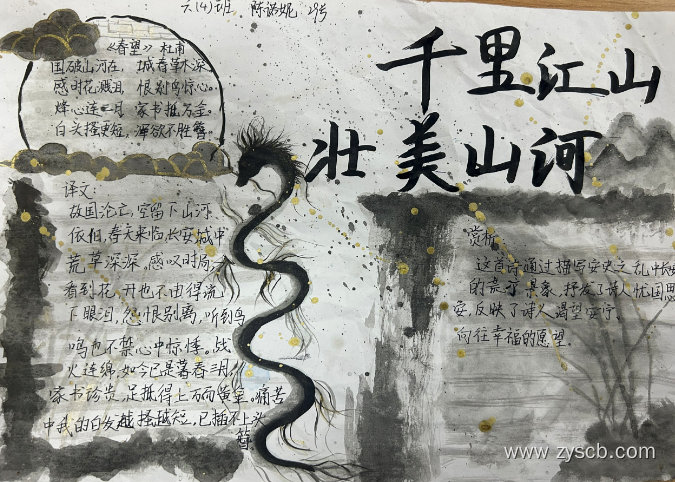 六(4)班 陈诺妮 29号
千里江山
壮美山河
《春望》杜甫
国破山河在, 城春草木深。
感时花溅泪 恨别鸟惊心。
烽火连三月 家书抵万金。
白头搔更短, 浑欲不胜簪。
译文:
故国沦亡,空留下山河
依旧,春天来临,长安城中
荒草深深,感叹时局
看到花开也不由得流
下眼泪,怨恨别离,听到鸟
鸣也不禁心中惊悸。战
火连绵,如今已是暮春三月
家书珍贵,足抵得上万两黄金。痛苦
中我的白发越搔越短,已插不上头
簪
赏析
这首诗通过描写安史之乱中长安
的衰 景象,抒发了诗人忧国思
安,反映了诗人渴望安宁、
向往幸福的愿望。
www.zyscb.com